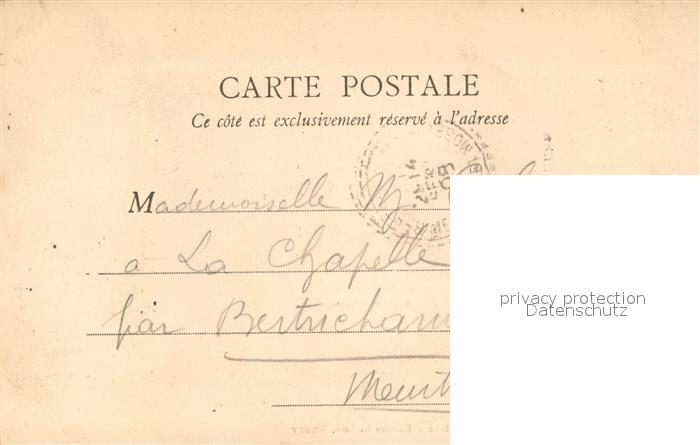 CARTE POSTALE
Ce côté est exclusivement réservé à l'adresse
Mademoiselle M
à La Chapelle
par Bertricham
Meurt
privacy protection
Datenschutz